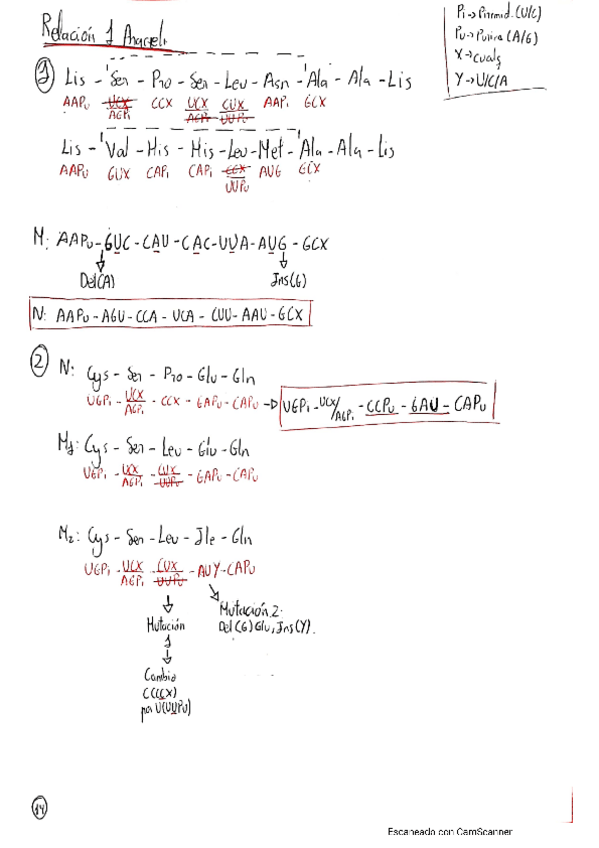 Relación 1 Araceli
Pi → Pirimid. (U/C)
Pu → Purina (A/G)
X → cualq
Y → U/C/A
1) Lis - Ser - Pro - Ser - Leu - Asn - Ala - Ala - Lis
AAPu UCX/AGPi CCX UCX/AGPi CUX/UUPu AAPi GCX
Lis - Val - His - His - Leu - Met - Ala - Ala - Lis
AAPu GUX CAPi CAPi CCX/UUPu AUG GCX
M: AAPu - GUC - CAU - CAC - UUA - AUG - GCX
Del(A) Ins(G)
N: AAPu - AGU - CCA - UCA - CUU - AAU - GCX
2) N: Cys - Ser - Pro - Glu - Gln
UGPi - UCX/AGPi - CCX - GAPu - CAPu → UGPi - UCX/AGPi - CCPu - GAU - CAPu
M1: Cys - Ser - Leu - Glu - Gln
UGPi - UCX/AGPi - CUX/UUPu - GAPu - CAPu
M2: Cys - Ser - Leu - Ile - Gln
UGPi - UCX/AGPi - CUX/UUPu - AUY - CAPu
Mutación 1
Mutación 2:
Del(G) Glu, Ins(Y).
Cambia
C(CCX)
por U(UUPu)
14
Escaneado con CamScanner